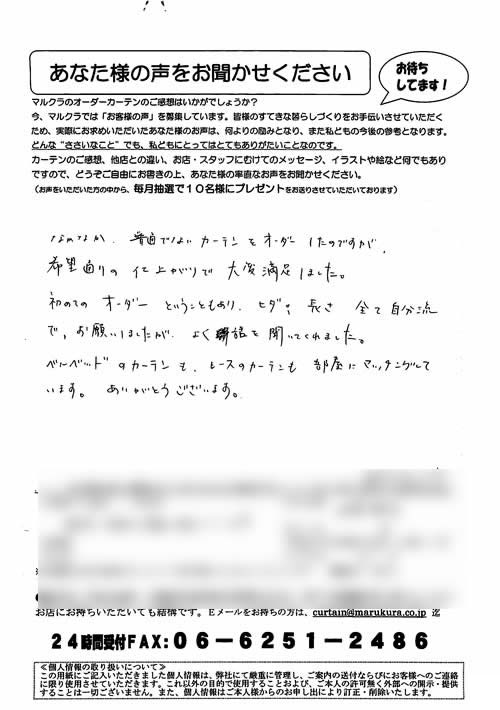 あなた様の声をお聞かせください
お待ち
してます！
マルクラのオーダーカーテンのご感想はいかがでしょうか？
今、マルクラでは「お客様の声」を募集しています。皆様のすてきな暮らしづくりをお手伝いさせていただく
ため、実際にお求めいただいたあなた様のお声は、何よりの励みとなり、また私どもの今後の参考となります。
どんな“ささいなこと”でも、私どもにとってはとてもありがたいことなのです。
カーテンのご感想、他店との違い、お店・スタッフにむけてのメッセージ、イラストや絵など何でもあり
ですので、どうぞご自由にお書きの上、あなた様の率直なお声をお聞かせください。
（お声をいただいた方の中から、毎月抽選で１０名様にプレゼントをお送りさせていただいております）
なのなか、普通でないカーテンをオーダーしたのですが、
希望通りの仕上がりで大変満足しました。
初めてのオーダーということもあり、ヒダ、長さ全て自分流
で、お願いしましたが、よく話を聞いてくれました。
ベルベッドのカーテンも、レースのカーテンも部屋にマッチングして
います。ありがとうございます。
お店にお持ちいただいても結構です。Ｅメールをお持ちの方は、curtain@marukura.co.jp 迄
２４時間受付FAX:０６－６２５１－２４８６
≪個人情報の取り扱いについて≫
この用紙にご記入いただきました個人情報は、弊社にて厳重に管理し、ご案内の送付ならびにお客様へのご連絡
に限り使用させていただきます。これ以外の目的で使用することおよび、ご本人の許可無く外部への開示・提供
することは一切ございません。また、個人情報はご本人様からのお申し出により訂正・削除いたします。